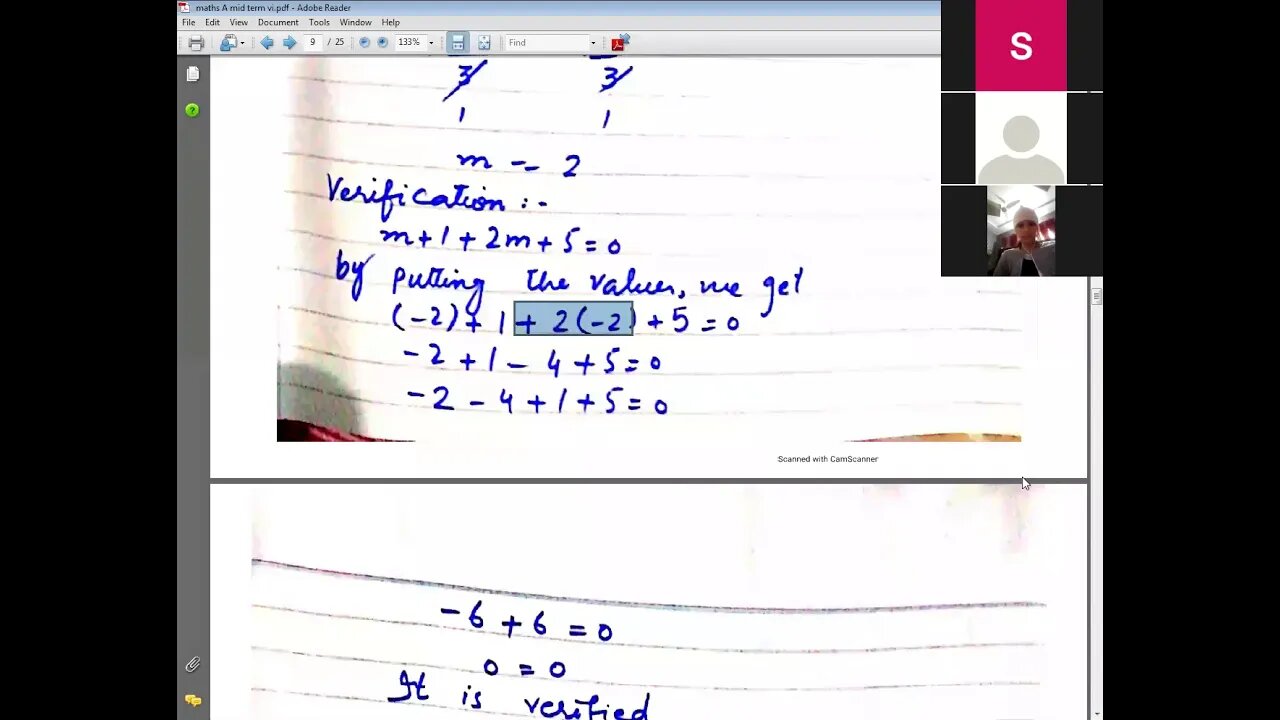 maths A mid term vi.pdf - Adobe Reader
File Edit View Document Tools Window Help
9 / 25 133% Find
3 3
1 1
m = - 2
Verification :-
m + 1 + 2m + 5 = 0
by putting the values, we get
(-2) + 1 + 2(-2) + 5 = 0
-2 + 1 - 4 + 5 = 0
-2 - 4 + 1 + 5 = 0
Scanned with CamScanner
-6 + 6 = 0
0 = 0
It is verified
S